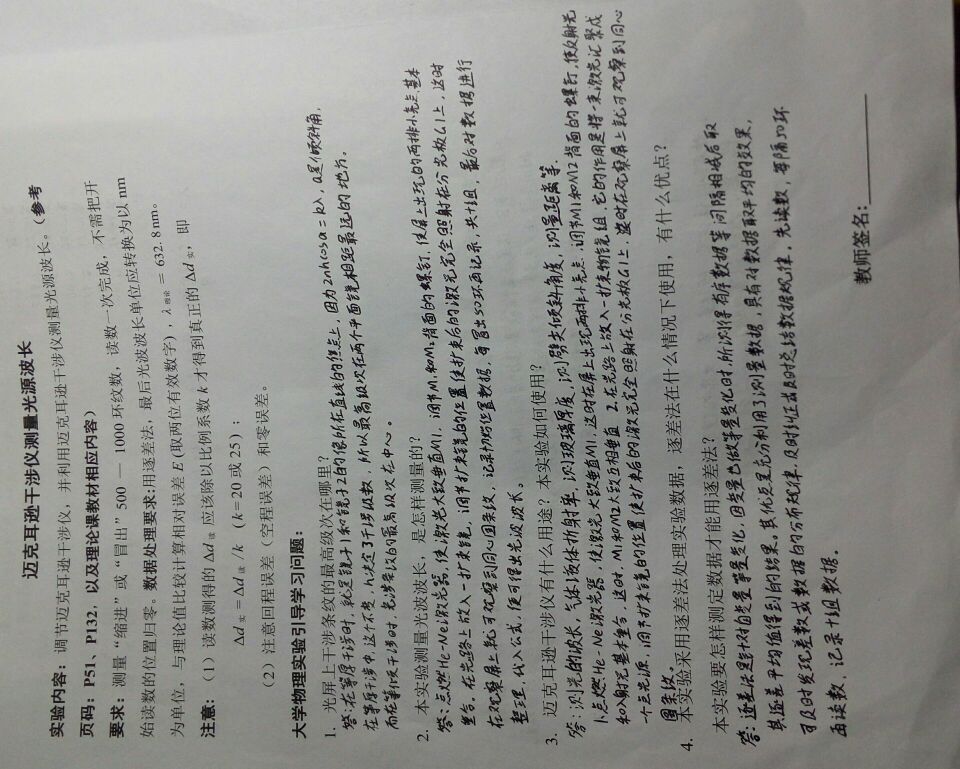 迈克耳逊干涉仪测量光源波长
实验内容：调节迈克耳逊干涉仪，并利用迈克耳逊干涉仪测量光源波长。（参考
页码：P51、P132，以及理论课教材相应内容）
要求：测量“缩进”或“冒出”500 — 1000 环纹数，读数一次完成，不需把开
始读数的位置归零。数据处理要求:用逐差法，最后光波波长单位应转换为以 nm
为单位，与理论值比较计算相对误差 E (取两位有效数字) ，λ理论 = 632.8nm。
注意：（1）读数测得的 Δd读 应该除以比例系数 k 才得到真正的 Δd实，即
Δd实 =Δd读 /k （k=20 或 25）；
（2）注意回程误差（空程误差）和零误差。
大学物理实验引导学习问题：
1. 光屏上干涉条纹的最高级次在哪里？
答：在等厚干涉时，就是镜子1和镜子2的像所在直线的焦点上，因为2nhcosα=kλ，α是倾斜角，
在等厚干涉中，这个不变，h决定了干涉级数，所以最高级次在两个平面镜相距最远的地方。
而在等倾干涉时，光涉条纹的最高级次在中心。
2. 本实验测量光波波长，是怎样测量的？
答：点燃He-Ne激光器，使激光大致垂直M1，调节M1和M2背面的螺钉，使屏上出现的两排小亮点基本
重合。在光路上放入一扩束镜，调节扩束镜的位置使扩束后的激光完全照射在分光板G1上，这时
在观察屏上就可观察到同心圆条纹，记录初始位置数据，每冒出50环再记录，共十组，最后对数据进行
整理，代入公式，便可得出光波波长。
3. 迈克耳逊干涉仪有什么用途？本实验如何使用？
答：测光的波长，气体液体折射率，测玻璃厚度，测劈尖倾斜角度，测量距离等.
1.点燃He-Ne激光器，使激光大致垂直M1，这时在屏上出现两排小亮点.调节M1和M2背面的螺钉，使反射光
和入射光基本重合，这时，M1和M2大致互相垂直 2.在光路上放入一扩束物镜组，它的作用是将一束激光汇聚成
一个点光源，调节扩束镜的位置使扩束后的激光完全照射在分光板G1上，这时在观察屏上就可观察到同心
圆条纹。
4. 本实验采用逐差法处理实验数据，逐差法在什么情况下使用，有什么优点？
本实验要怎样测定数据才能用逐差法？
答：逐差法是针对自变量等量变化，因变量也做等量变化时，所测得有序数据等间隔相减后取
其逐差平均值得到的结果。其优点是充分利用了测量数据，具有对数据取平均的效果，
可及时发现差数或数据的分布规律，及时纠正或及时总结数据规律。先读数，每隔50环
再读数，记录十组数据。
教师签名: